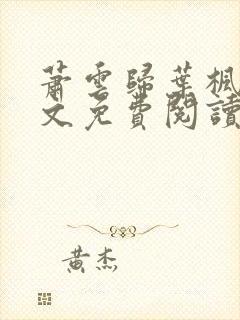 蕭雲歸葉楓
文免費閱讀
黃杰